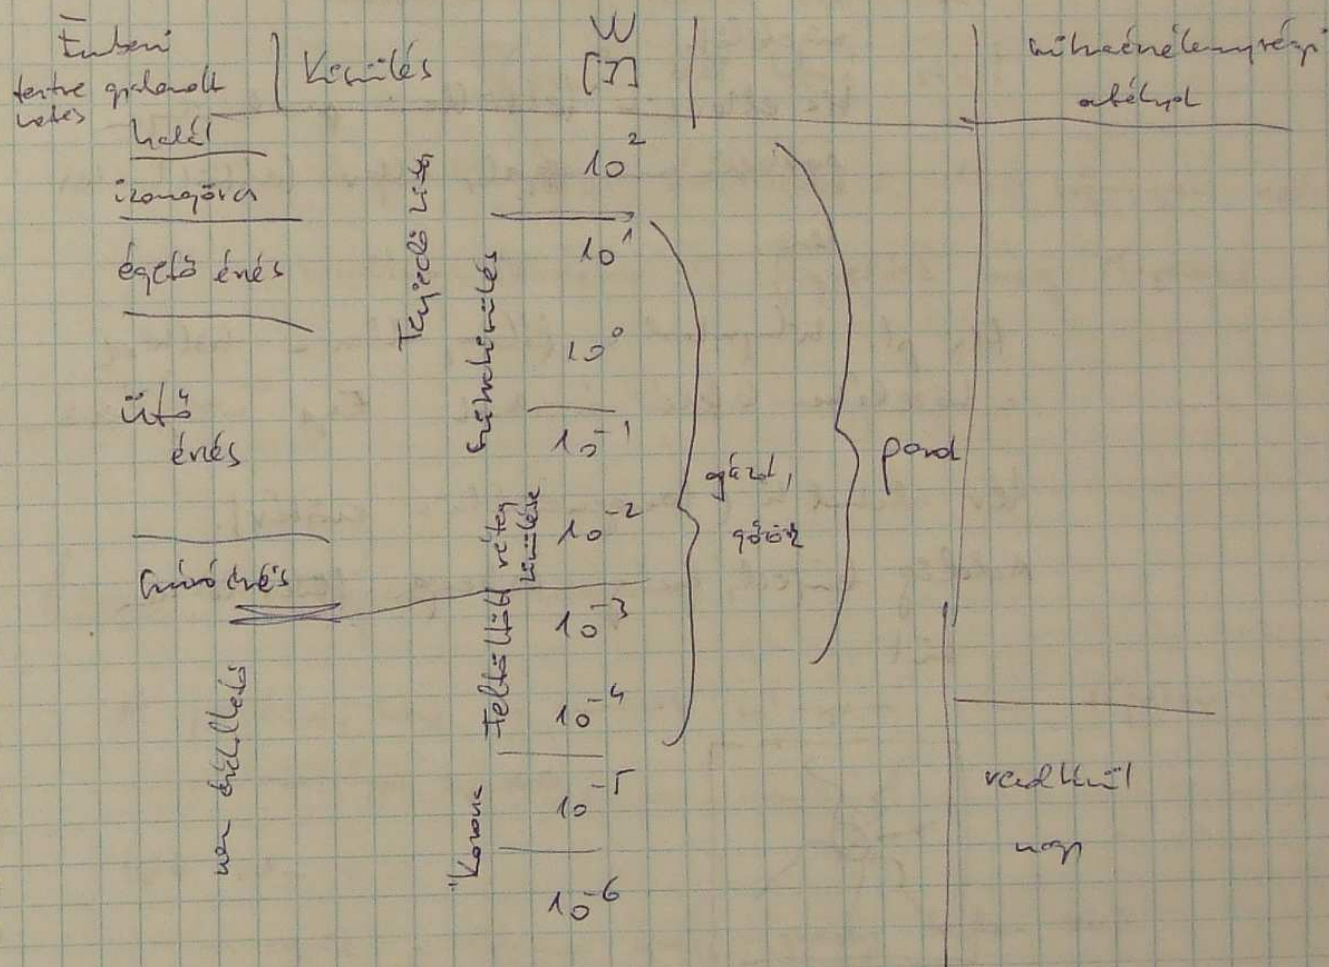 Emberi
testre gyakorolt
hatás
Kisülés
W
[J]
halál
izomgörcs
égető érzés
ütő
érzés
szúró érzés
nem érzékelhető
Terjedő
Szikrakisülés
Feltöltött réteg
kisülése
Korona
10²
10¹
10⁰
10⁻¹
10⁻²
10⁻³
10⁻⁴
10⁻⁵
10⁻⁶
gázok,
gőzök
porok
rendkívül
nagy